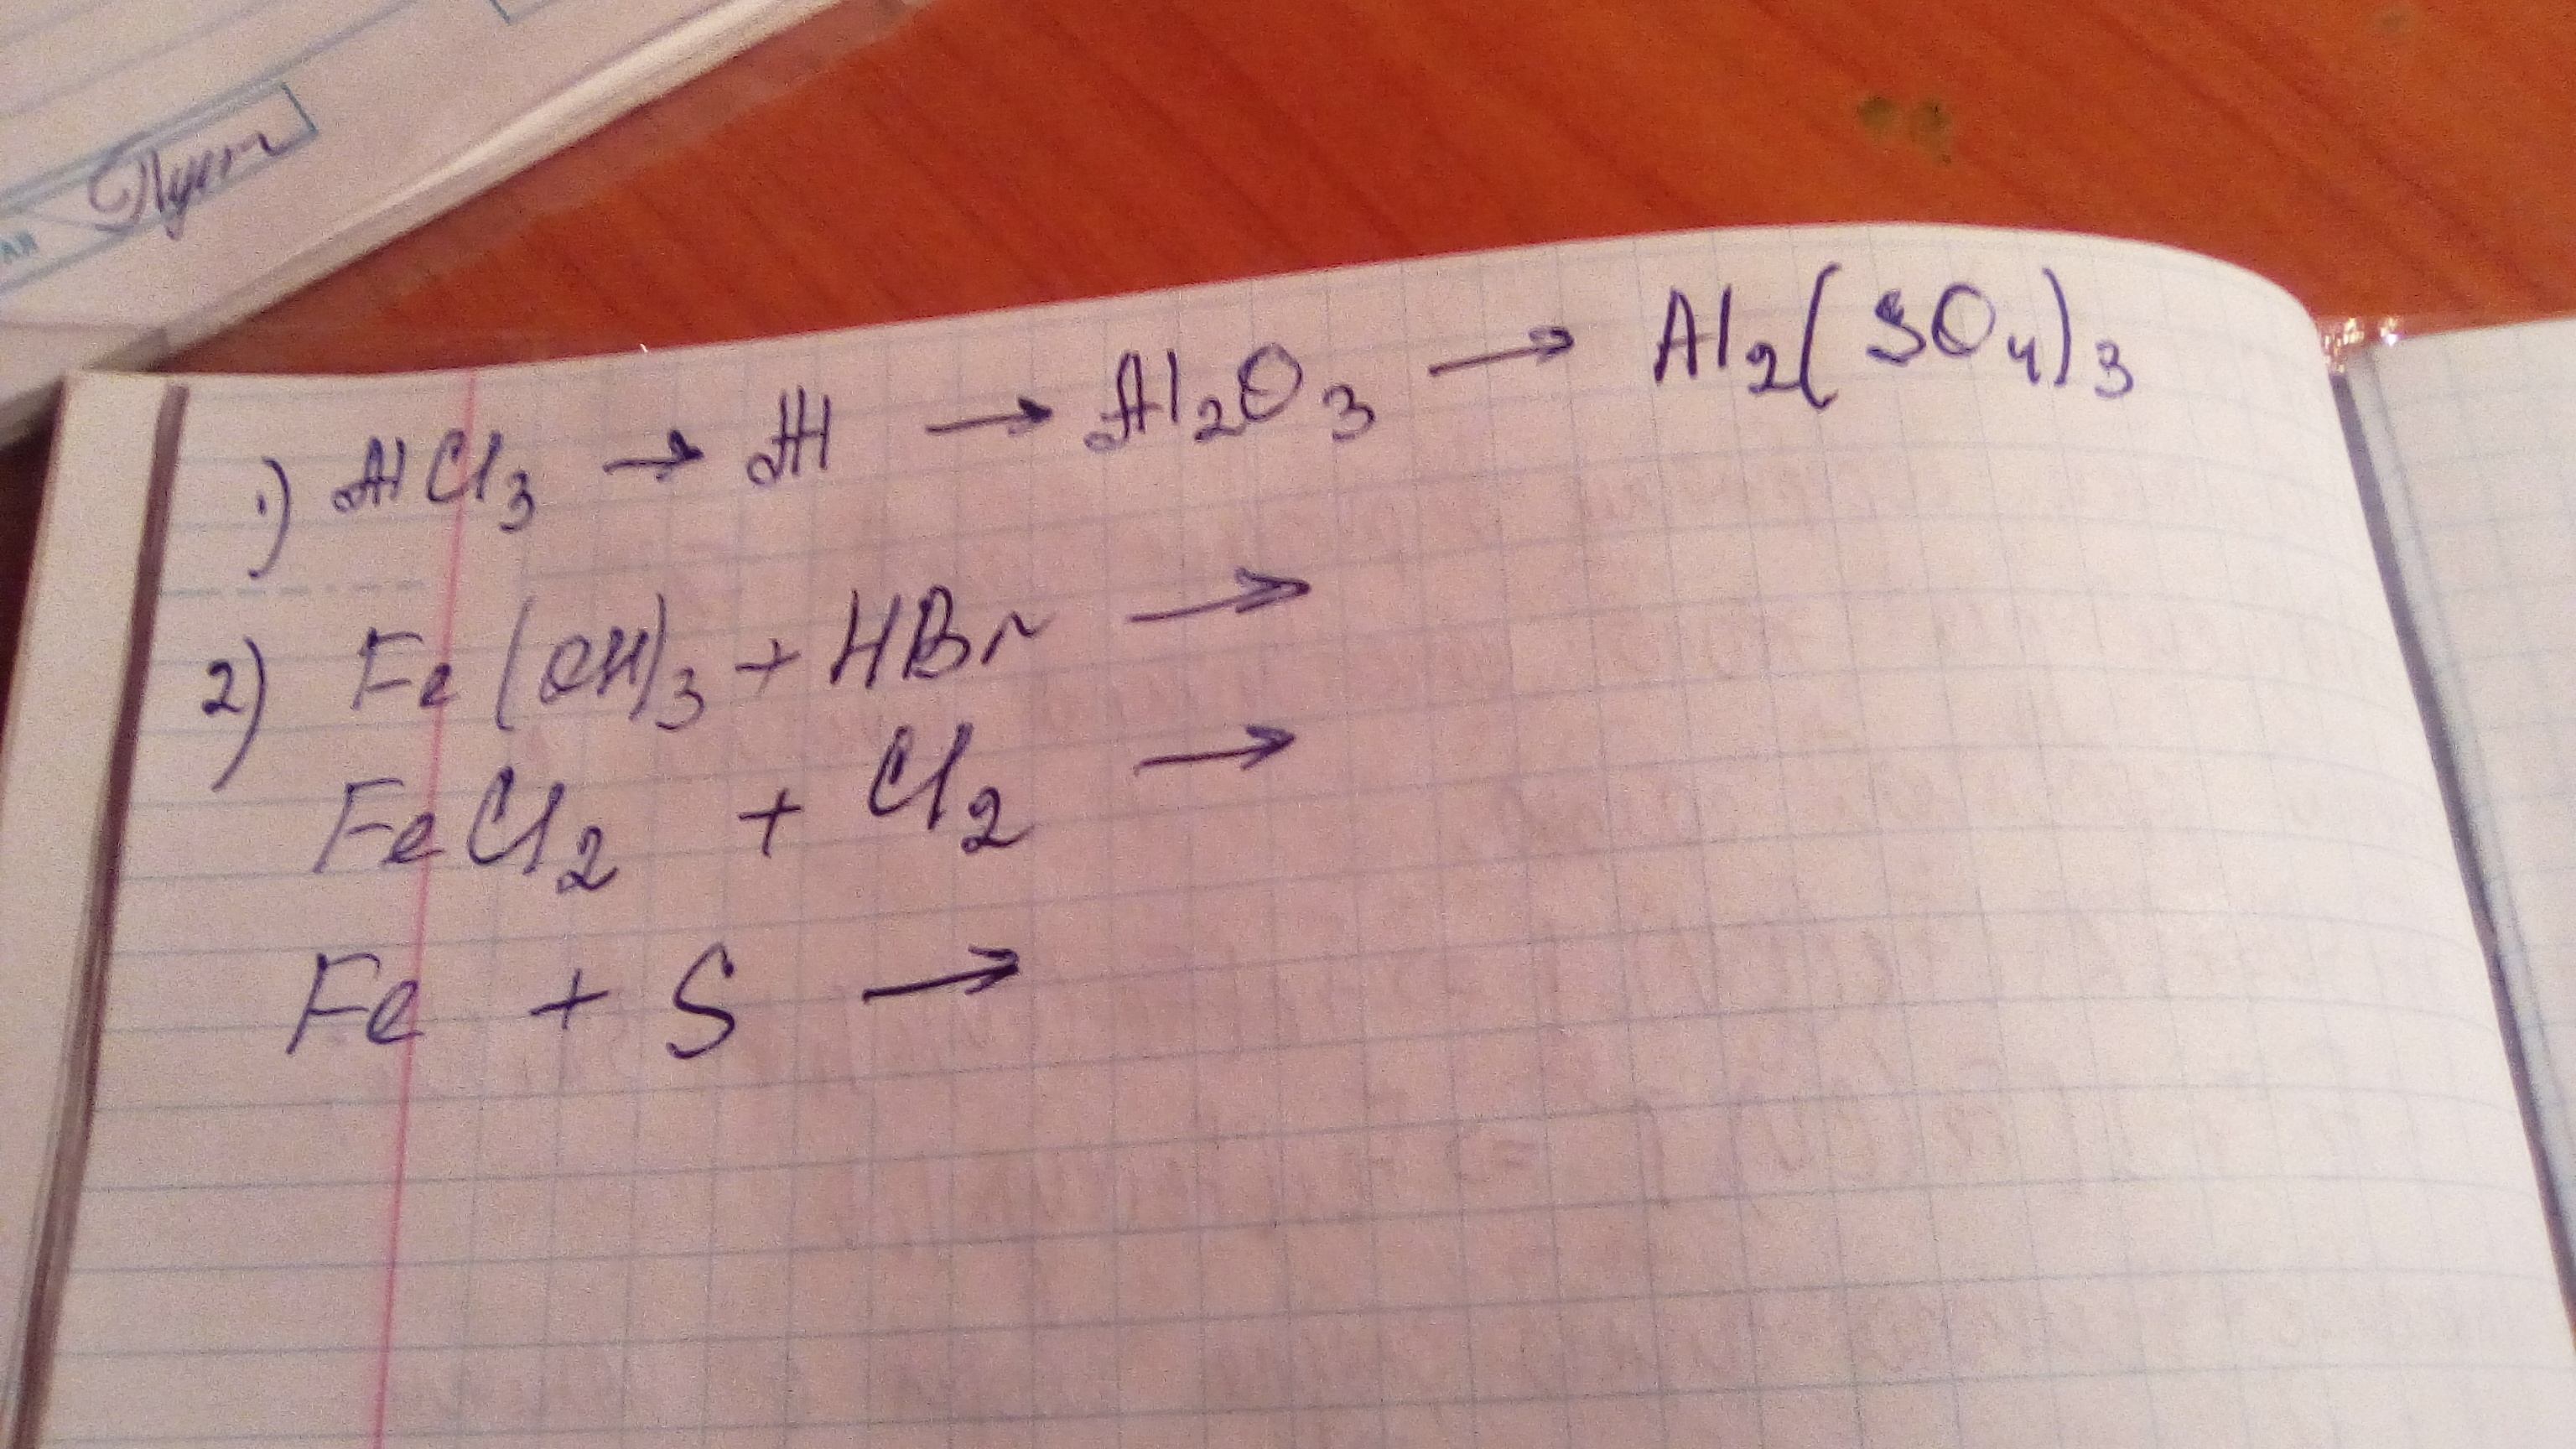 1) AlCl₃ → Al → Al₂O₃ → Al₂(SO₄)₃
2) Fe(OH)₃ + HBr →
FeCl₂ + Cl₂ →
Fe + S →